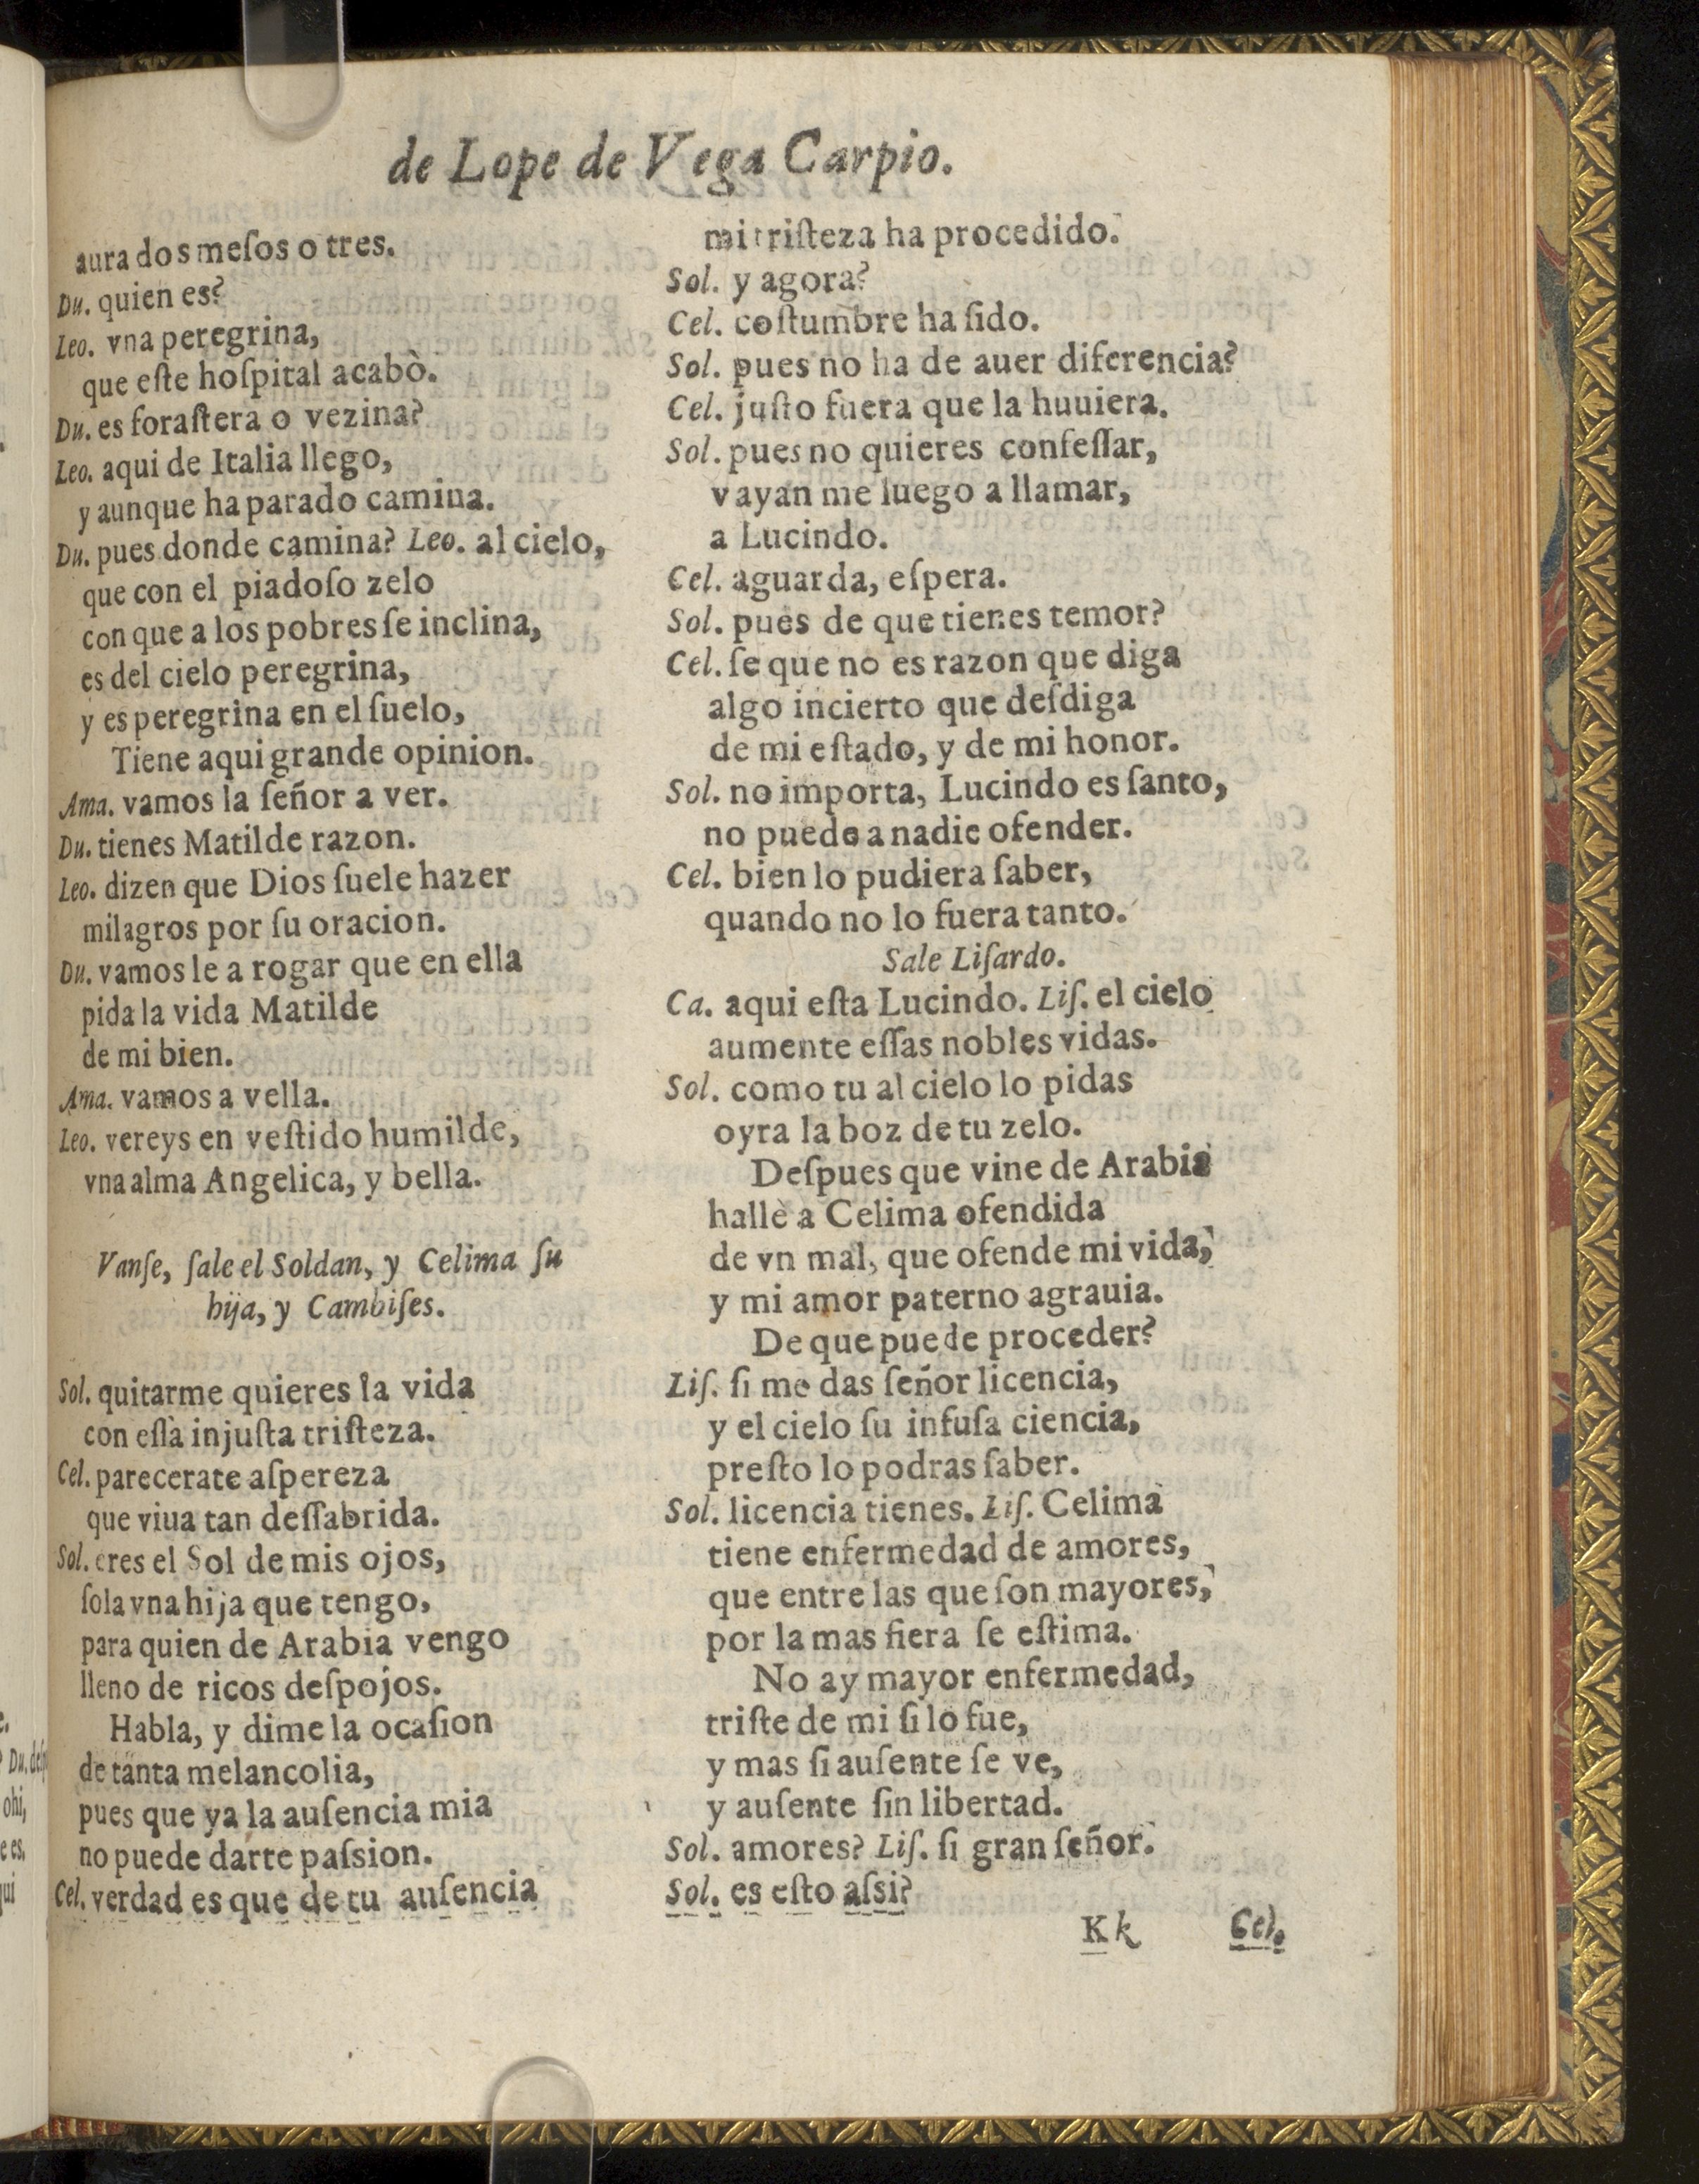 de Lope de Vega Carpio.
aura dos mesos o tres.
Du. quien es?
Leo. vna peregrina,
que este hospital acabò.
Du. es forastera o vezina?
Leo. aqui de Italia llego,
y aunque ha parado camina.
Du. pues donde camina? Leo. al cielo,
que con el piadoso zelo
con que a los pobres se inclina,
es del cielo peregrina,
y es peregrina en el suelo,
Tiene aqui grande opinion.
Ama. vamos la señor a ver.
Du. tienes Matilde razon.
Leo. dizen que Dios suele hazer
milagros por su oracion.
Du. vamos le a rogar que en ella
pida la vida Matilde
de mi bien.
Ama. vamos a vella.
Leo. vereys en vestido humilde,
vna alma Angelica, y bella.
Vanse, sale el Soldan, y Celima su
hija, y Cambises.
Sol. quitarme quieres la vida
con essa injusta tristeza.
Cel. parecerate aspereza
que viua tan dessabrida.
Sol. eres el Sol de mis ojos,
sola vna hija que tengo,
para quien de Arabia vengo
lleno de ricos despojos.
Habla, y dime la ocasion
de tanta melancolia,
pues que ya la ausencia mia
no puede darte passion.
Cel. verdad es que de tu ausencia
mi tristeza ha procedido.
Sol. y agora?
Cel. costumbre ha sido.
Sol. pues no ha de auer diferencia?
Cel. justo fuera que la huuiera.
Sol. pues no quieres confessar,
vayan me luego a llamar,
a Lucindo.
Cel. aguarda, espera.
Sol. pues de que tienes temor?
Cel. se que no es razon que diga
algo incierto que desdiga
de mi estado, y de mi honor.
Sol. no importa, Lucindo es santo,
no puede a nadie ofender.
Cel. bien lo pudiera saber,
quando no lo fuera tanto.
Sale Lisardo.
Ca. aqui esta Lucindo. Lis. el cielo
aumente essas nobles vidas.
Sol. como tu al cielo lo pidas
oyra la boz de tu zelo.
Despues que vine de Arabia
hallè a Celima ofendida
de vn mal, que ofende mi vida,
y mi amor paterno agrauia.
De que puede proceder?
Lis. si me das señor licencia,
y el cielo su infusa ciencia,
presto lo podras saber.
Sol. licencia tienes. Lis. Celima
tiene enfermedad de amores,
que entre las que son mayores,
por la mas fiera se estima.
No ay mayor enfermedad,
triste de mi si lo fue,
y mas si ausente se ve,
y ausente sin libertad.
Sol. amores? Lis. si gran señor.
Sol. es esto assi?
Kk Cel.